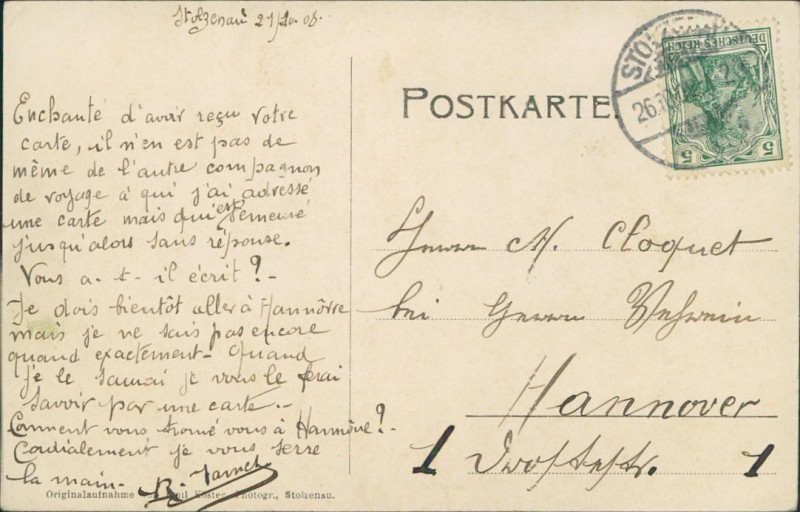 Stolzenau 21/10-08.
Enchanté d'avoir reçu votre
carte, il n'en est pas de
même de l'autre compagnon
de voyage à qui j'ai adressé
une carte mais qui est demeuré
jusqu'alors sans réponse.
Vous a-t-il écrit? -
Je dois bientôt aller à Hannôvre
mais je ne sais pas encore
quand exactement - Quand
je le saurai je vous le ferai
savoir par une carte. -
Comment vous trouvé vous à Hannôvre? -
Cordialement je vous serre
la main -
Originalaufnahme Emil Köster, Photogr., Stolzenau.
POSTKARTE.
DEUTSCHES REICH
5 5
STOL
26.
Herrn M. Cloquet
bei Herrn
Hannover
1 Drostestr. 1